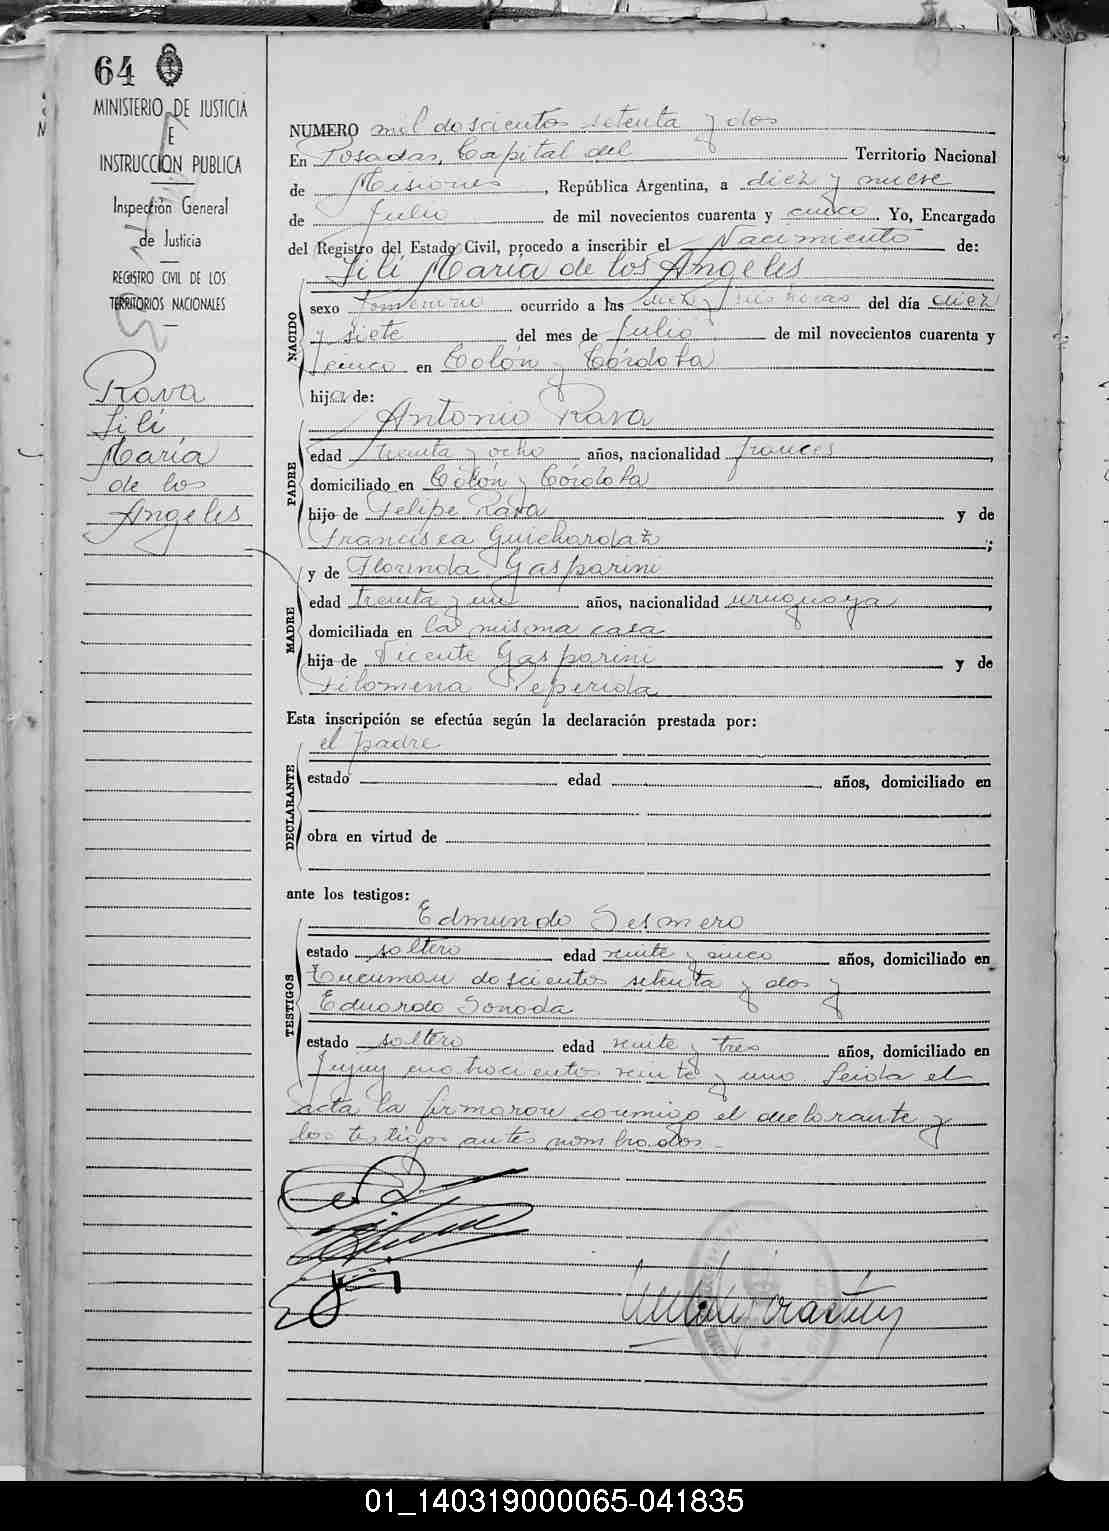 64
MINISTERIO DE JUSTICIA
E
INSTRUCCION PUBLICA
Inspección General
de Justicia
REGISTRO CIVIL DE LOS
TERRITORIOS NACIONALES
Rava
Lilí
María
de los
Angeles
NUMERO mil doscientos setenta y dos
En Posadas, Capital del Territorio Nacional
de Misiones, República Argentina, a diez y nueve
de Julio de mil novecientos cuarenta y cinco. Yo, Encargado
del Registro del Estado Civil, procedo a inscribir el Nacimiento de:
Lilí María de los Angeles
NACIDO
sexo femenino ocurrido a las diez y seis horas del día diez
y siete del mes de Julio de mil novecientos cuarenta y
cinco en Colón y Córdoba
hija de:
Antonio Rava
PADRE
edad treinta y ocho años, nacionalidad francés,
domiciliado en Colón y Córdoba
hijo de Felipe Rava y de
Francisca Guichardaz;
y de Florinda Gasparini
MADRE
edad treinta y un años, nacionalidad uruguaya,
domiciliada en la misma casa
hija de Vicente Gasparini y de
Filomena Peperida
Esta inscripción se efectúa según la declaración prestada por:
el padre
DECLARANTE
estado edad años, domiciliado en
obra en virtud de
ante los testigos:
Edmundo Sesmero
TESTIGOS
estado soltero edad veinte y cinco años, domiciliado en
Tucuman doscientos setenta y dos y
Eduardo Sonoda
estado soltero edad veinte y tres años, domiciliado en
Jujuy cuatrocientos veinte y uno Leida el
acta la firmaron conmigo el declarante y
los testigos antes nombrados.
01_140319000065-041835